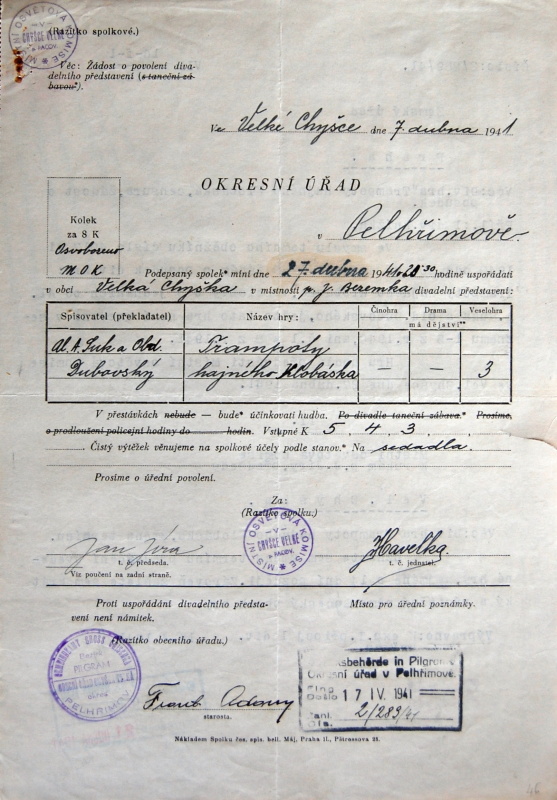 (Razítko spolkové.)
MÍSTNÍ OSVĚTOVÁ KOMISE
-V-
CHYŠCE VELNÉ
u PACOV.
Věc: Žádost o povolení diva-
delního představení (s taneční zá-
bavou*).
Ve Velké Chyšce dne 7. dubna 1941
OKRESNÍ ÚŘAD
Kolek
za 8 K
Osvobozeno
M O K
v Pelhřimově.
Podepsaný spolek* míní dne 27. dubna 1941 o 20 30 hodině uspořádati
v obci Velká Chyška v místnosti p. J. Beremka divadelní představení:
Spisovatel (překladatel) Název hry: Činohra Drama Veselohra
má dějství**
Al. A. Suk a Old. Trampoty
Dubovský hajného Klobáska — — 3
V přestávkách nebude — bude* účinkovati hudba. Po divadle taneční zábava.* Prosíme,
o prodloužení policejní hodiny do hodin. Vstupné K 5 4 3.
Čistý výtěžek věnujeme na spolkové účely podle stanov.* Na sedadla.
Prosíme o úřední povolení.
Za:
(Razítko spolku.)
MÍSTNÍ OSVĚTOVÁ KOMISE
-V-
CHYŠCE VELNÉ
u PACOV.
Jan Jíra Havelka
t. č. předseda. t. č. jednatel.
Viz poučení na zadní straně.
Proti uspořádání divadelního představ-
tení není námitek.
Místo pro úřední poznámky.
(Razítko obecního úřadu.)
PILGRAM
PELHŘIMOV
Frant.
starosta.
sbehörde in Pilgram
Okresní úřad v Pelhřimově.
Došlo 17 IV. 1941
2/289/41
Nákladem Spolku čes. spis. bell. Máj, Praha II., Pštrossova 21.
46